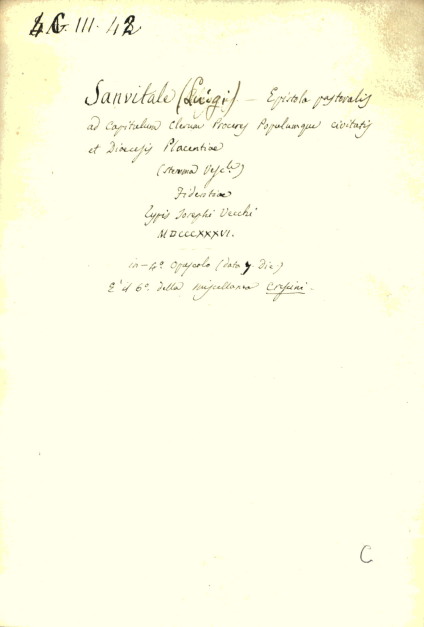 4G. III. 42
Sanvitale (Luigi) — Epistola pastoralis
ad Capitulum Clerum Proceres Populumque civitatis
et Dioecesis Placentiae
(stemma Vesc.le)
Fidentiae
Typis Josephi Vecchi
MDCCCXXXVI.
in-4º Opuscolo (data 7. Dic)
E' il 6º. della miscellanea Crescini.
C